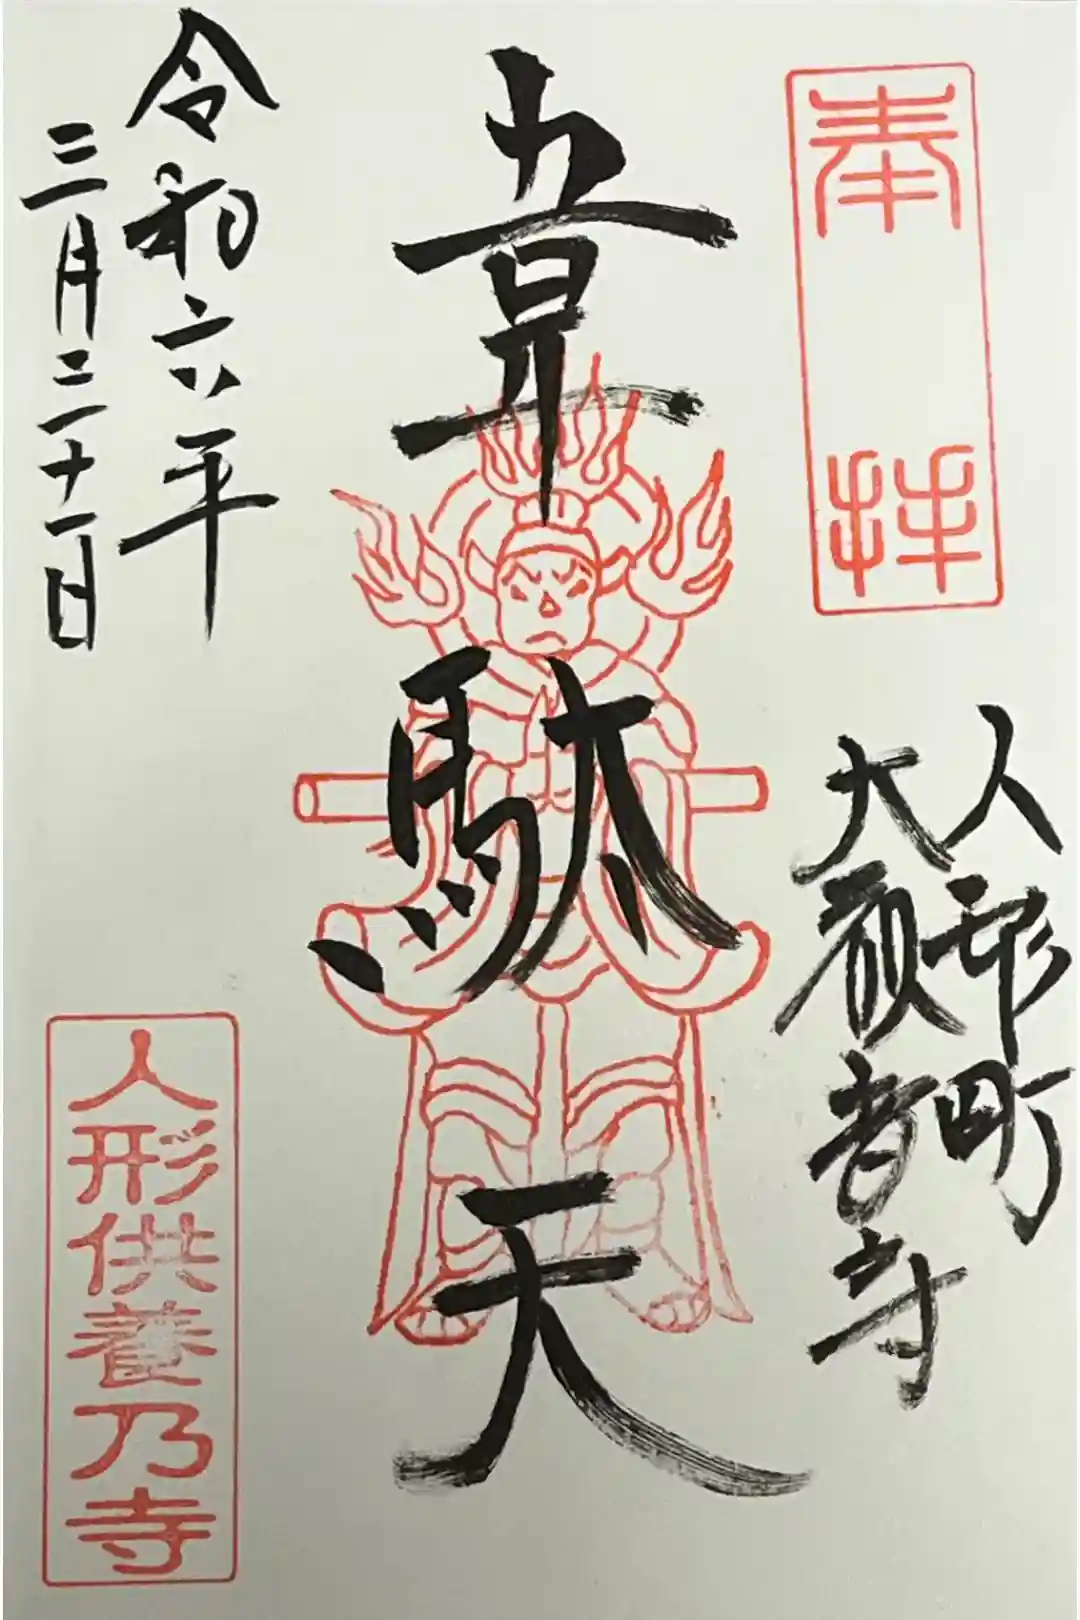 奉拝
人形町
大観音寺
韋駄天
令和六年
三月二十一日
人形供養乃寺